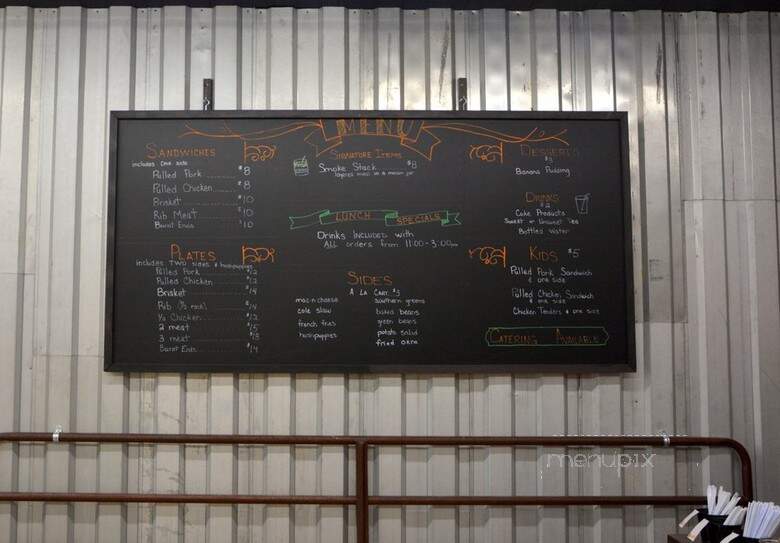 MENU
SANDWICHES
includes one side
Pulled Pork $8
Pulled Chicken $8
Brisket $10
Rib Meat $10
Burnt Ends $10
PLATES
includes TWO sides & hushpuppies
Pulled Pork $12
Pulled Chicken $12
Brisket $14
Rib (1/2 rack) $14
1/2 Chicken $12
2 meat $15
3 meat
Burnt Ends $14
SIGNATURE ITEMS
Smoke Stack $8
layered meal in a mason jar
LUNCH SPECIALS
Drinks INCLUDED with
ALL orders from 11:00-3:00pm
SIDES
A LA CART $3
mac-n-cheese
cole slaw
french fries
hushpuppies
southern greens
baked beans
green beans
potato salad
fried okra
DESSERTS
$3
Banana Pudding
DRINKS
$2
Coke Products
Sweet or Unsweet Tea
Bottled Water
KIDS $5
Pulled Pork Sandwich
& one side
Pulled Chicken Sandwich
& one side
Chicken Tenders & one side
CATERING AVAILABLE
menupix